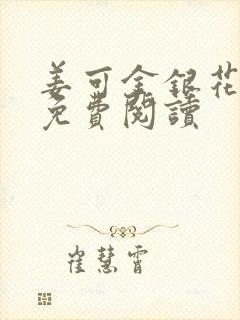 姜可金銀花
免費閱讀
崔慧霄